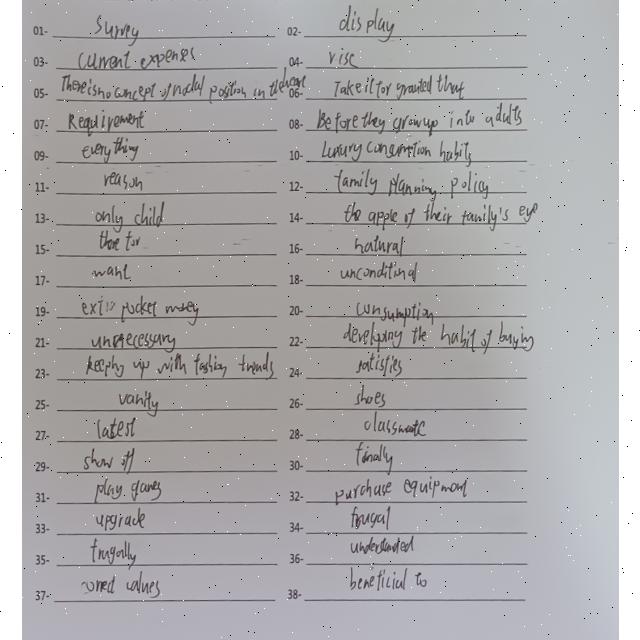 01- Survey 02- display
03- current expenses 04- rise
05- There is no concept of nodal position in the 06- Take it for granted that
07- Requirement 08- Before they grow up into adults
09- everything 10- Luxury consumption habits
11- reason 12- family planning policy
13- only child 14- the apple of their family's eye
15- there for 16- natural
17- want 18- unconditinal
19- pocket money 20- consumption
21- unnecessary 22- developing the habit of buying
23- up with fashion trends 24- satisfies
25- vanity 26- shoes
27- latest 28- classmate
29- show off 30- finally
31- play games 32- purchase equipment
33- upgrade 34- frugal
35- frugally 36- understanded
37- values 38- beneficial to